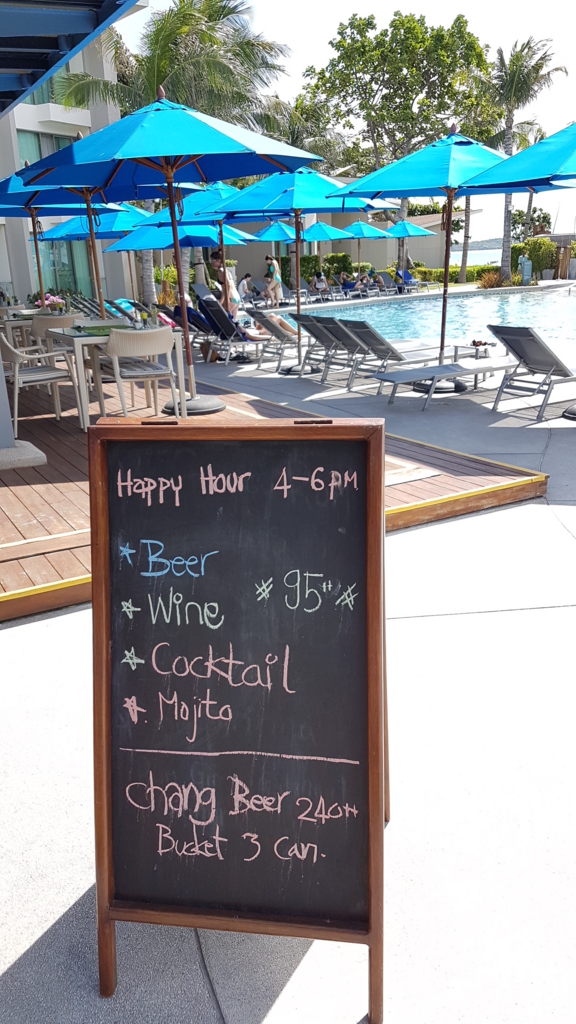 Happy Hour 4-6pm
* Beer
* Wine # 95++ #
* Cocktail
* Mojito
Chang Beer 240++
Bucket 3 Can.